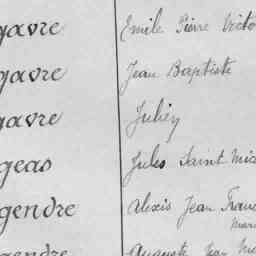 gavre Emile Pierre Victo
gavre Jean Baptiste
gavre Julien
geas Jules Saint Mis
gendre Alexis Jean Franc
Mari
gendre Auguste Jean Ma